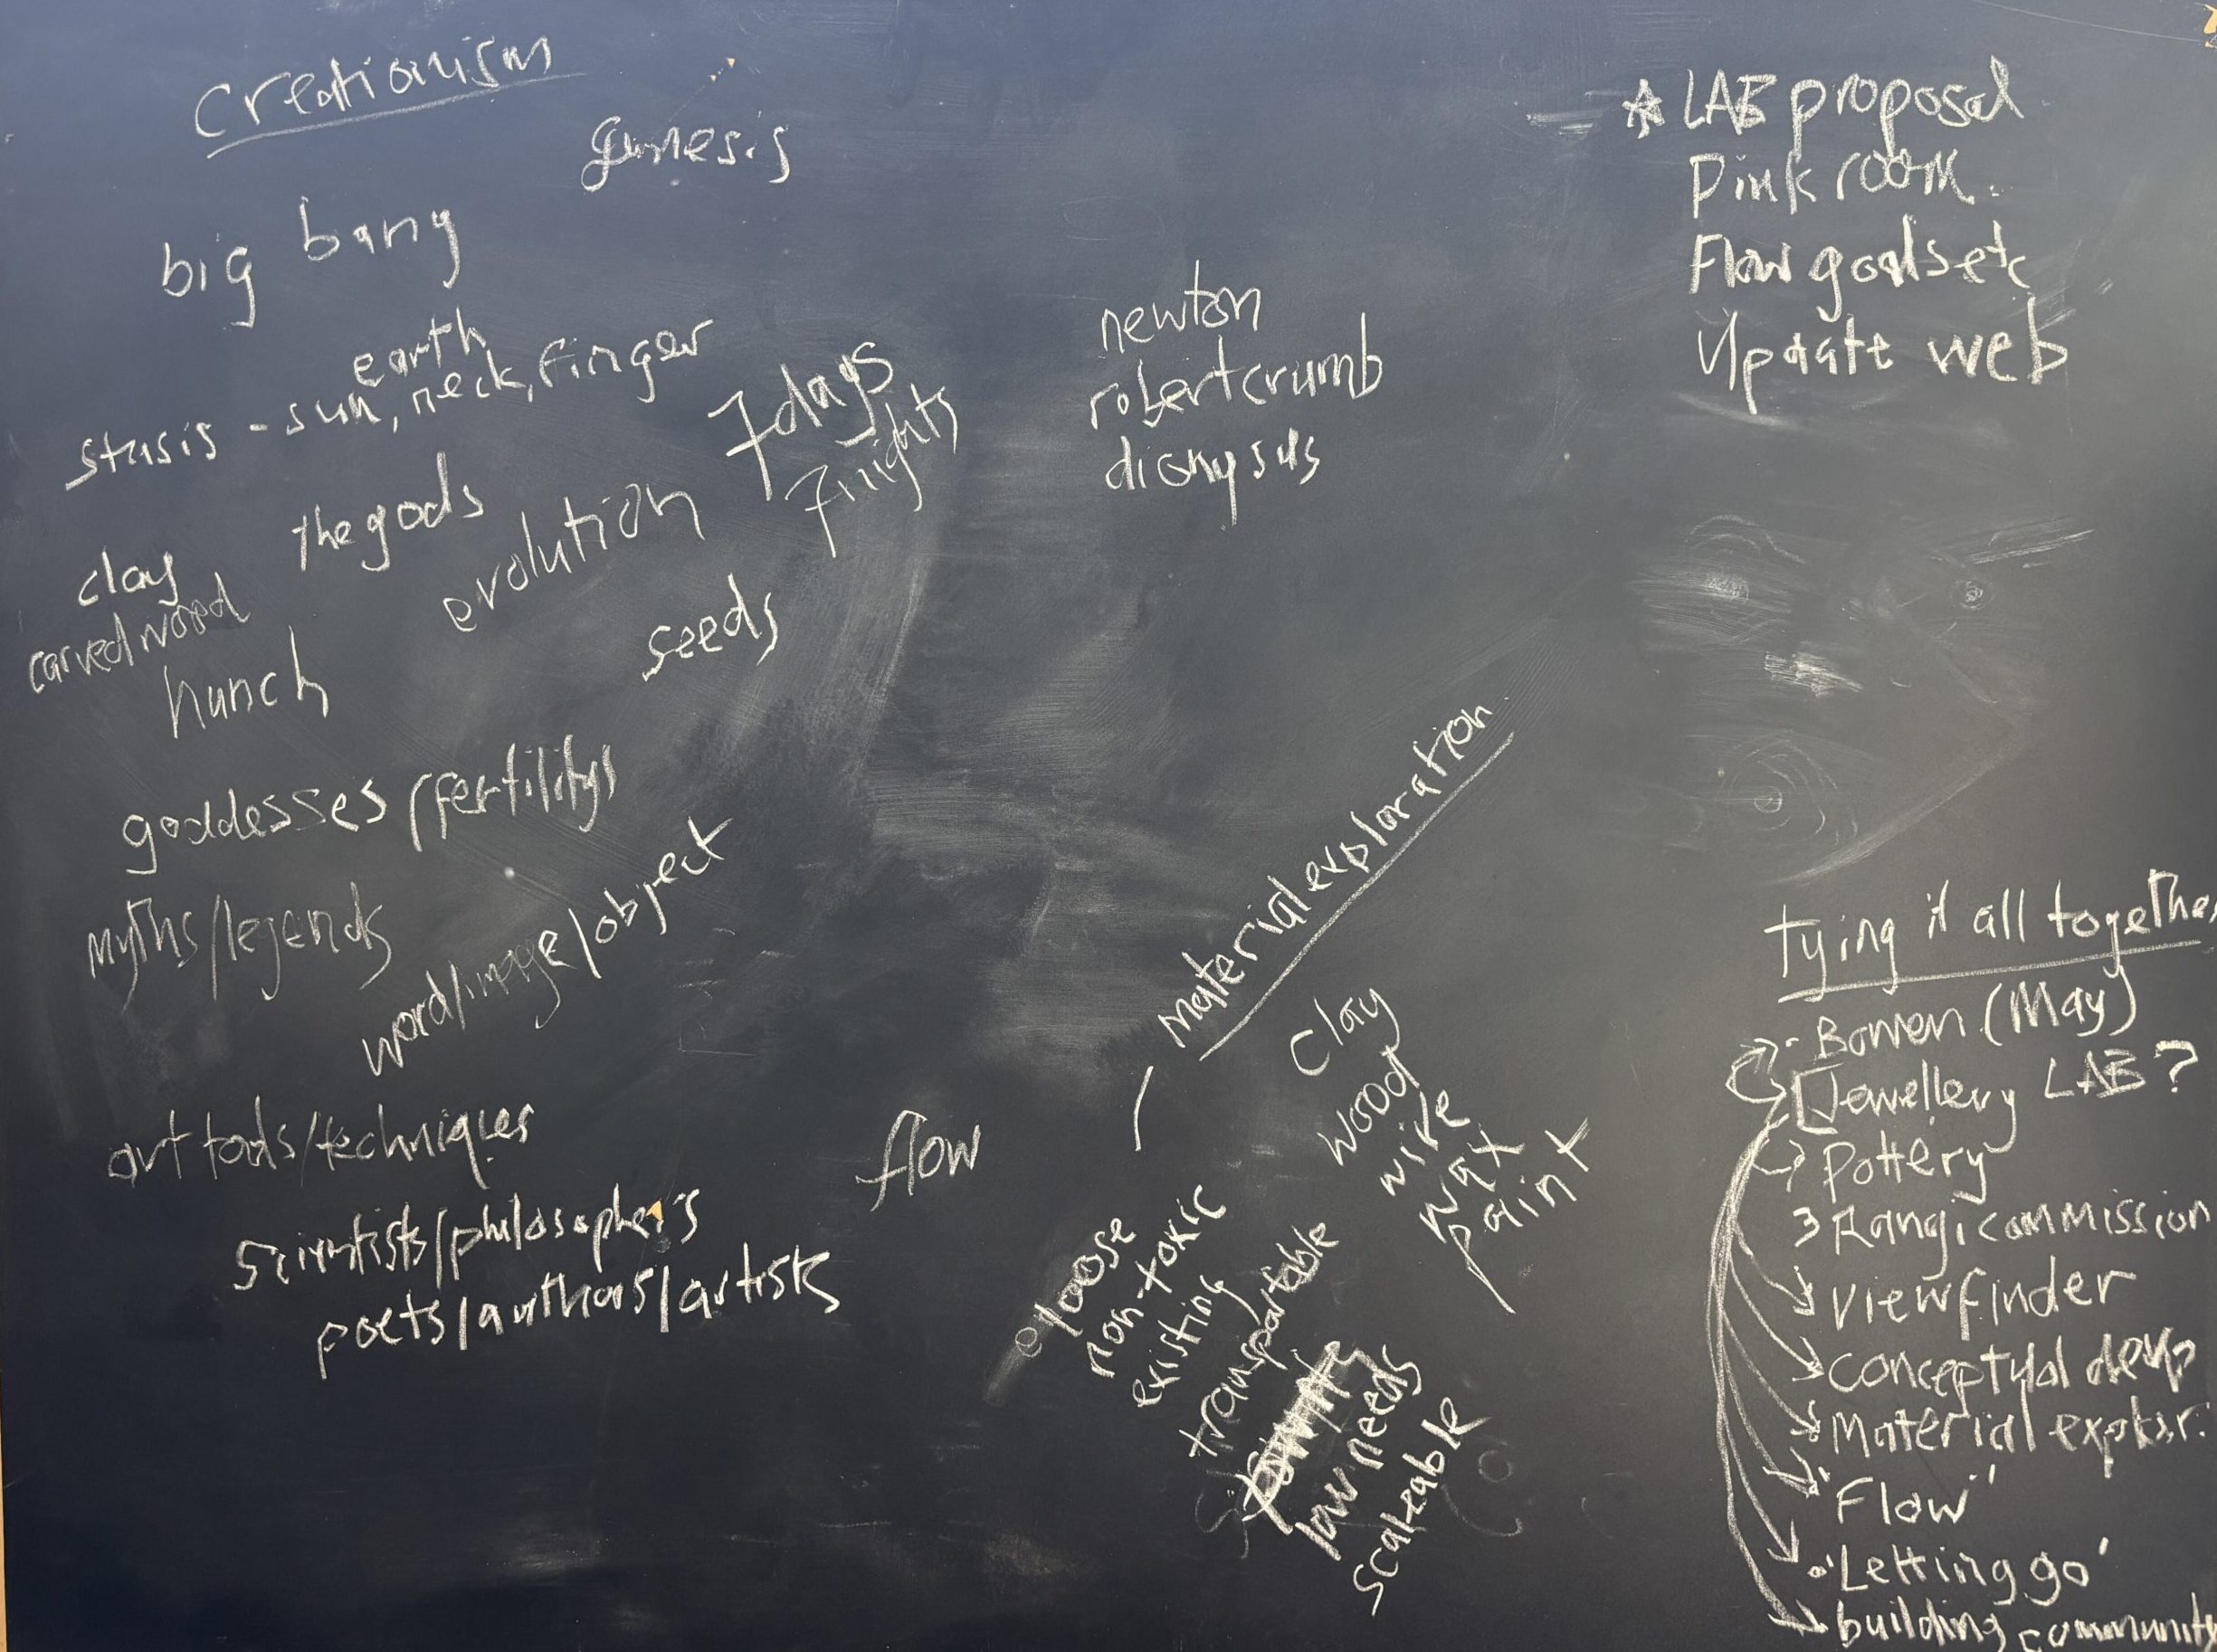 creationism
genesis
big bang
earth
stasis - sun, neck, finger
7 days
7 nights
the gods
evolution
clay
carved wood
hunch
seeds
goddesses/fertility
myths/legends
word/image/object
art tools/techniques
scientists/philosophers
poets/authors/artists
flow
newton
robert crumb
dionysus
Material exploration
clay
wood
wire
wax
paint
loose
non-toxic
existing
transportable
low needs
scaleable
☆ LAB proposal
Pink room
Flow goals etc
Update web
Tying it all together
- Bowen (May)
Jewellery LAB?
Pottery
Rangi commission
viewfinder
conceptual devp
Material explor.
'Flow'
'Letting go'
building community